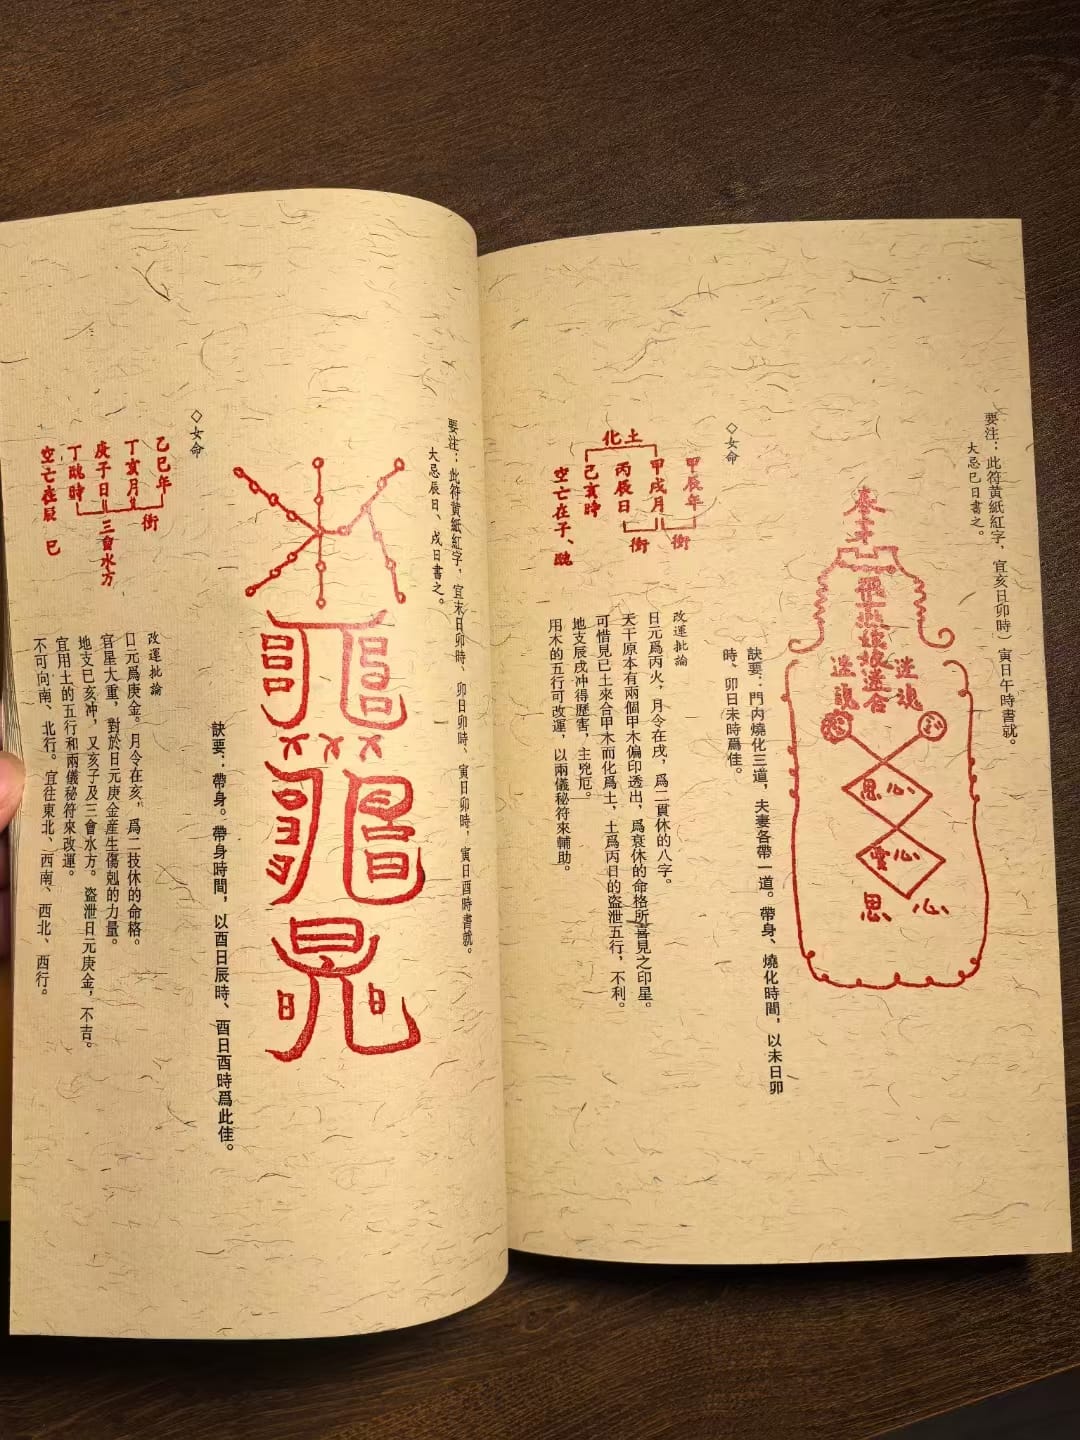 要注：此符黄紙紅字，宜亥日卯時）寅日午時書就。
大忌巳日書之。
奉
迷魂
迷魂
思心
心
思 心
訣要：門内燒化三道，夫妻各帶一道。帶身、燒化時間，以未日卯
時、卯日未時爲佳。
◇女命
甲辰年
甲戌月
丙辰日
己亥時
空亡在子、醜
化土
衝
衝
改運批論
日元爲丙火，月令在戌，爲二貫休的八字。
天干原本有兩個甲木偏印透出，爲衰休的命格所喜見之印星。
可惜見己土來合甲木而化爲土，土爲丙日的盗泄五行，不利。
地支辰戌冲得厲害，主兇厄。
用木的五行可改運，以兩儀秘符來輔助。
要注：此符黄紙紅字，宜未日卯時、卯日卯時、寅日卯時，寅日酉時書就。
大忌辰日、戌日書之。
訣要：帶身。帶身時間，以酉日辰時、酉日酉時爲此佳。
◇女命
己巳年
丁亥月
庚子日
丁醜時
空亡在辰 巳
衝
三會水方
改運批論
日元爲庚金。月令在亥，爲二技休的命格。
官星大重，對於日元庚金産生傷剋的力量。
地支巳亥冲，又亥子及三會水方。盗泄日元庚金，不吉。
宜用土的五行和兩儀秘符來改運。
不可向南、北行。宜往東北、西南、西北、西行。